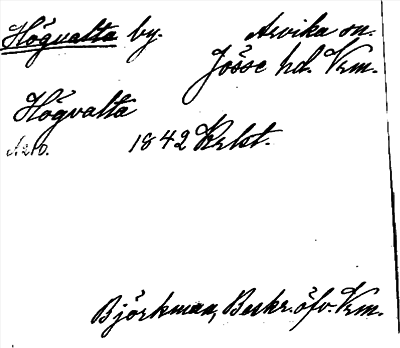 Högvalta by. Arvika sn.
Jösse hd. Vrm.
Högvalta
1842 Krkt.
Björkman, Beskr. öfv. Vrm.